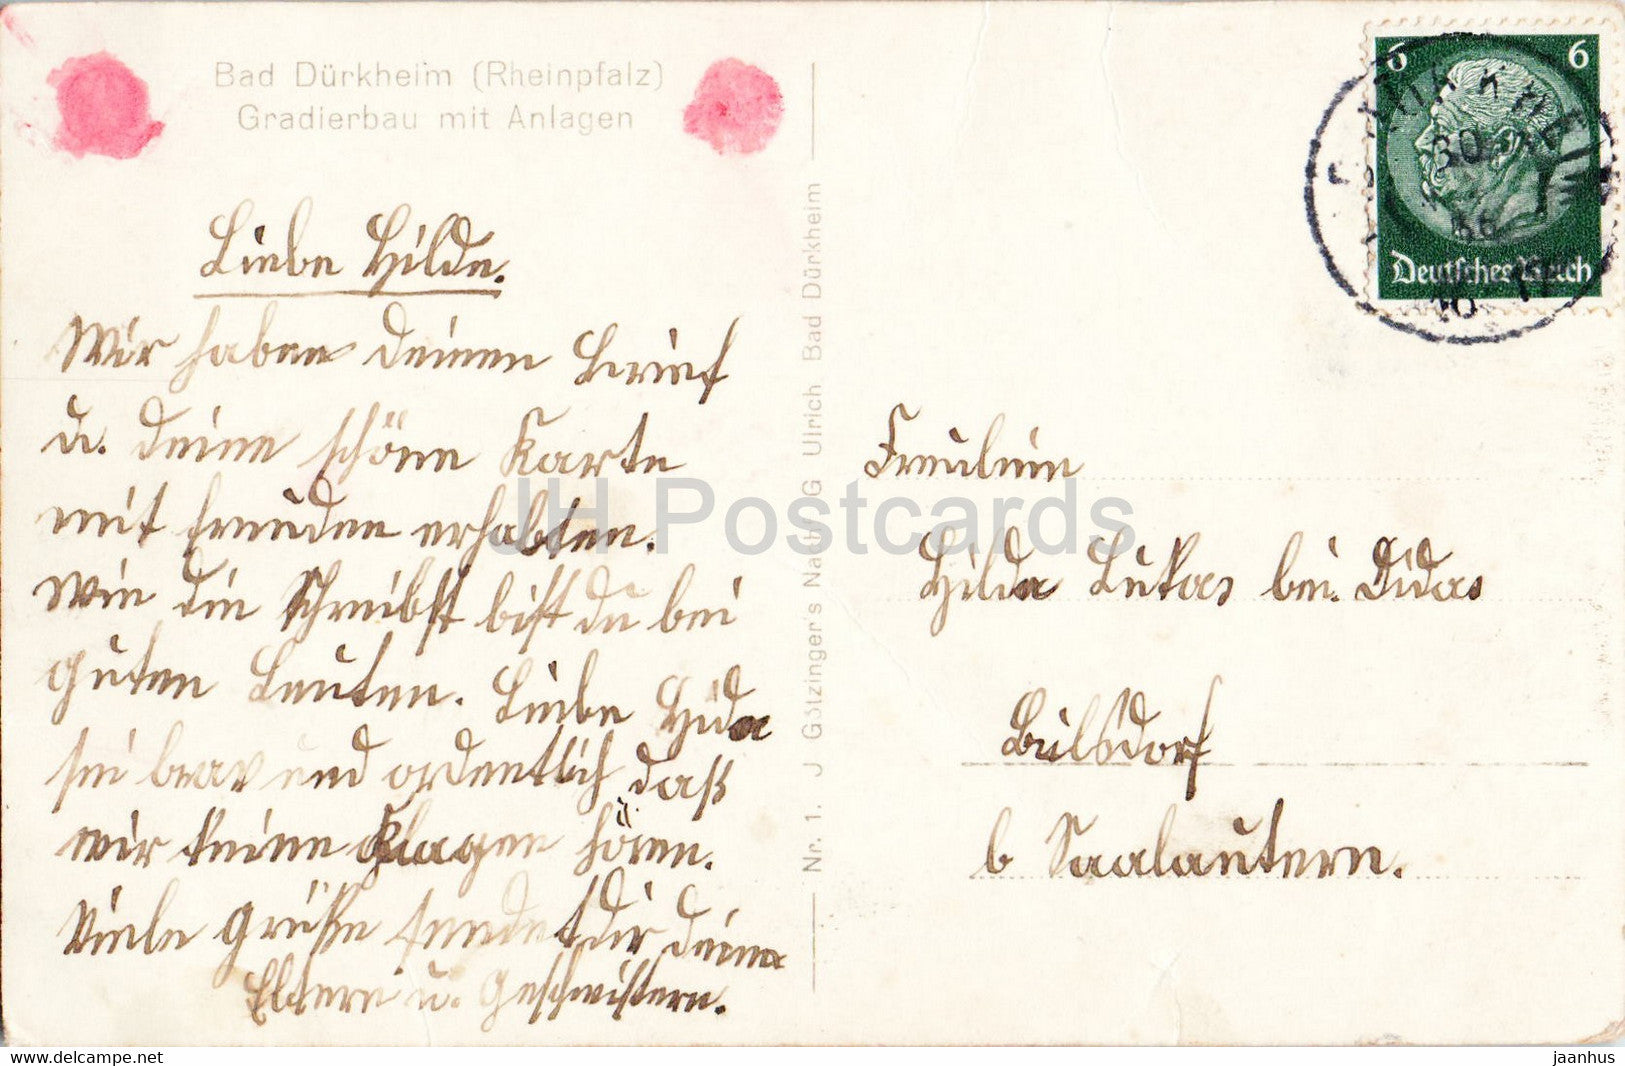 Bad Dürkheim (Rheinpfalz)
Gradierbau mit Anlagen
Liebe Hilde.
Wir haben deinen Brief
u. deine schöne Karte
mit Freuden erhalten.
Wie du schreibst bist du bei
guten Leuten. Liebe Hilda
sei brav und ordentlich daß
wir keine Klagen hören.
Viele Grüße sendet dir deine
Eltern u. Geschwistern.
Nr. 1. J Götzinger's Nachf G Ulrich Bad Dürkheim
6 6
30
36
Deutsches Reich
Fräulein
Hilda Lukas bei Didas
Bilsdorf
b Saalautern.
JH Postcards
jaanhus | HipPostcard.com